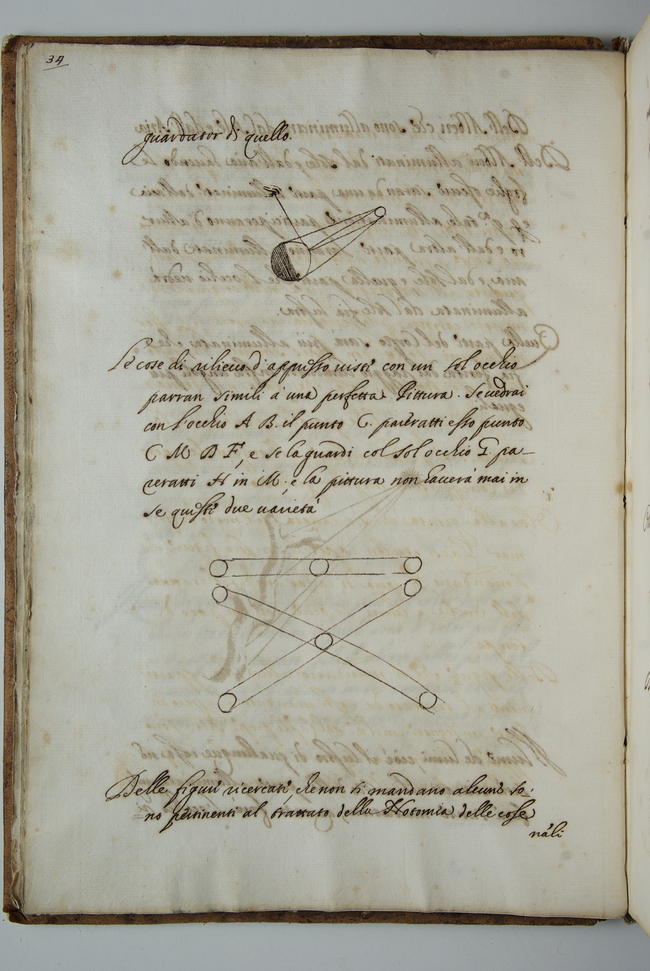 34
guardator di quello.
Le cose di rilievo d'appresso visti con un sol occhio
parran simili a una perfetta Pittura. Se vedrai
con l'occhio A B. il punto C. parratti esso punto
C M D F, e se la guardi col sol occhio G pa-
reratti H in M. e la pittura non haverà mai in
se questi due varietà
Delle figure ricercati, che non si mandano alcuni so-
no pertinenti al trattato della Notomia delle cose
nåli